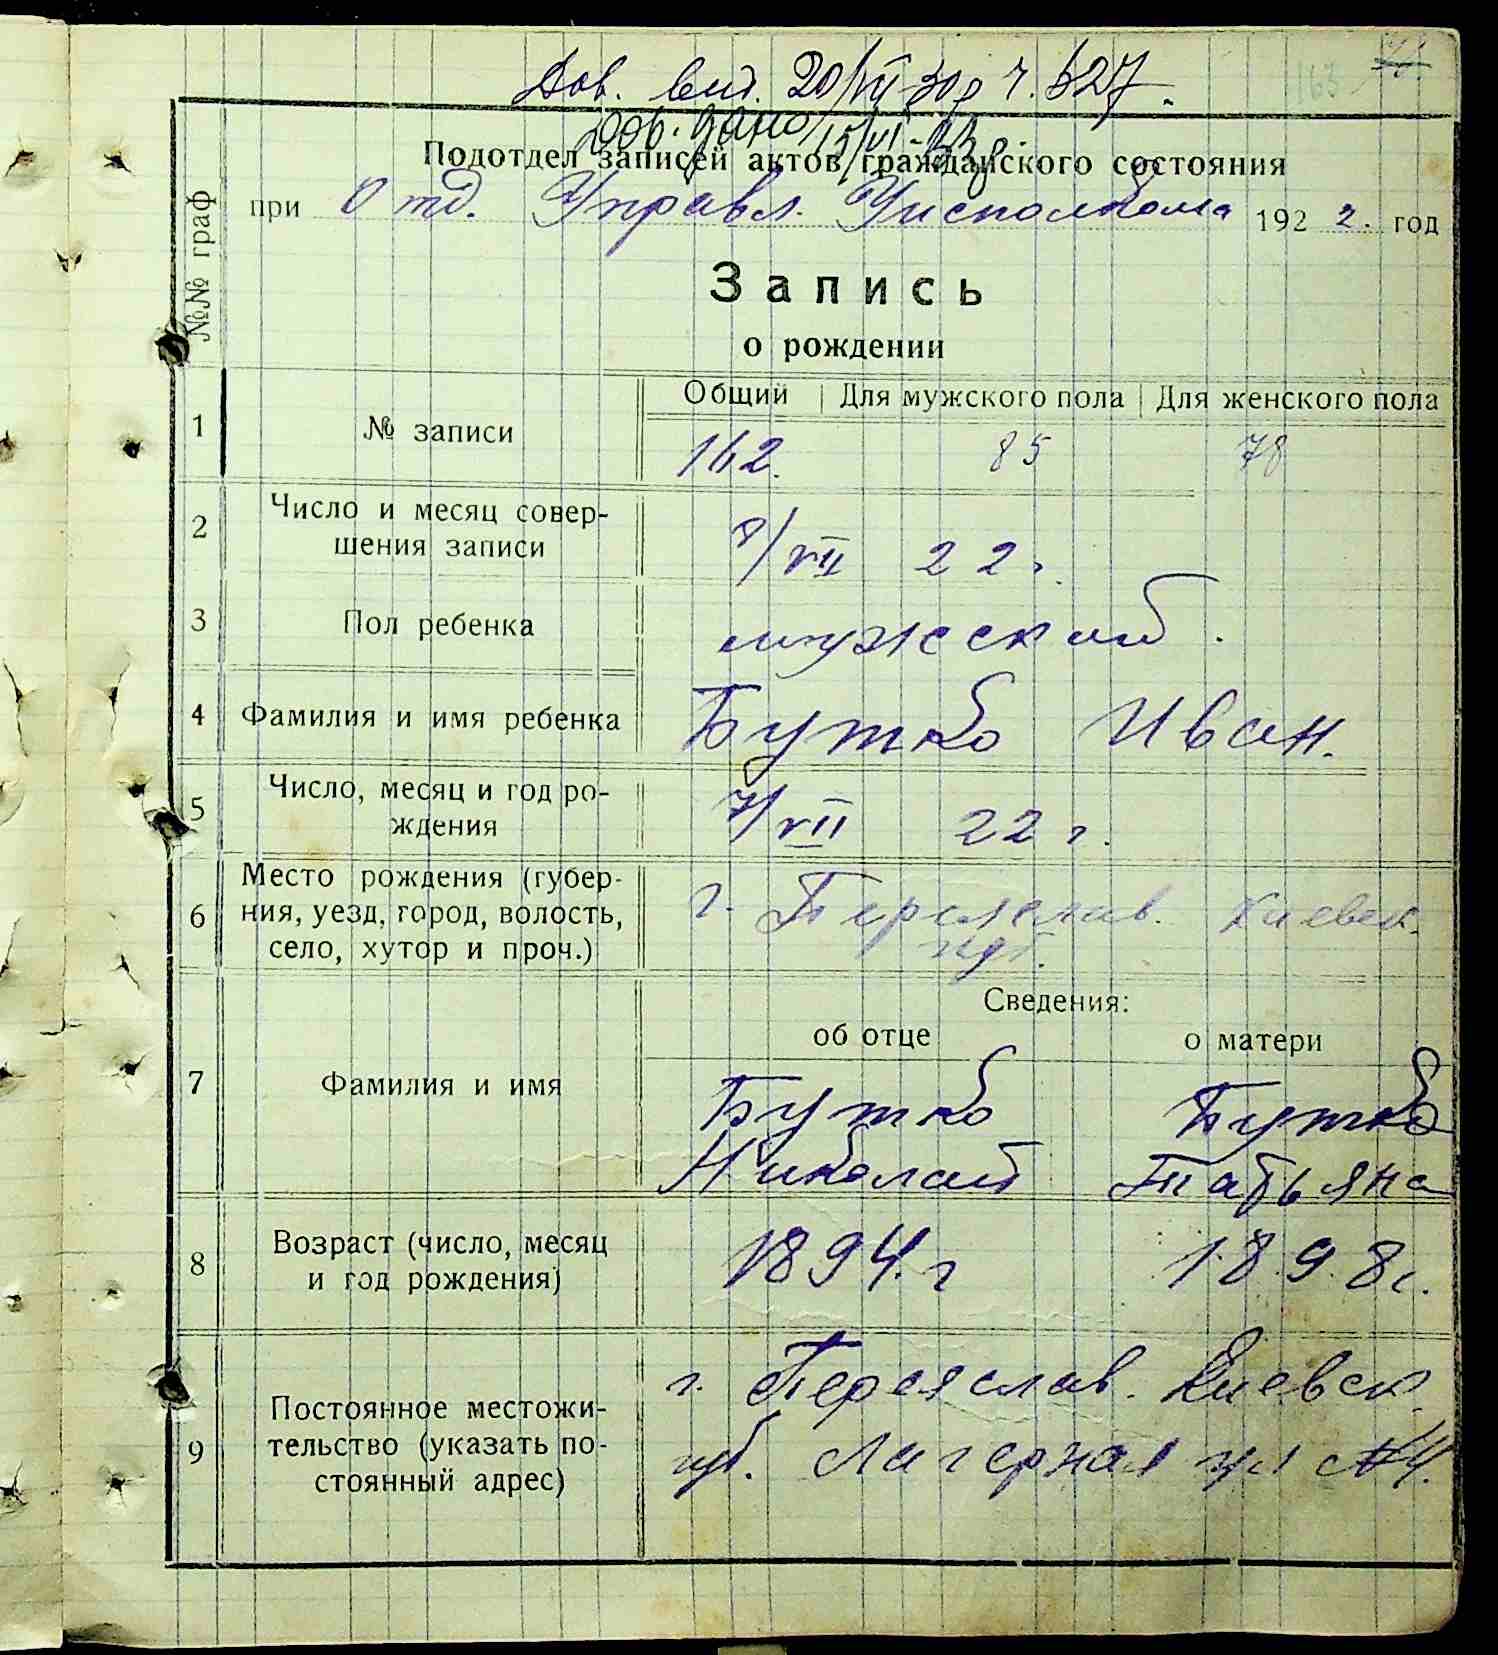 Дов. вид. 20/VII 30р ч. 527.
Дов. дано 15/VI-33р.
163
Подотдел записей актов гражданского состояния
при Отд. Управл. Уисполкома 1922. год
№№ граф
Запись
о рождении
Общий | Для мужского пола | Для женского пола
1 № записи 162. 85 78
2 Число и месяц совер-
шения записи 8/VII 22 г.
3 Пол ребенка мужской.
4 Фамилия и имя ребенка Бутко Иван.
5 Число, месяц и год ро-
ждения 7/VII 22 г.
6 Место рождения (губер-
ния, уезд, город, волость,
село, хутор и проч.) г. Переяслав. Киевск.
губ.
Сведения:
об отце о матери
7 Фамилия и имя Бутко Бутко
Николай Татьяна
8 Возраст (число, месяц
и год рождения) 1894.г 1898г.
9 Постоянное местожи-
тельство (указать по-
стоянный адрес) г. Переяслав. Киевск.
губ. Лагерная ул №4.